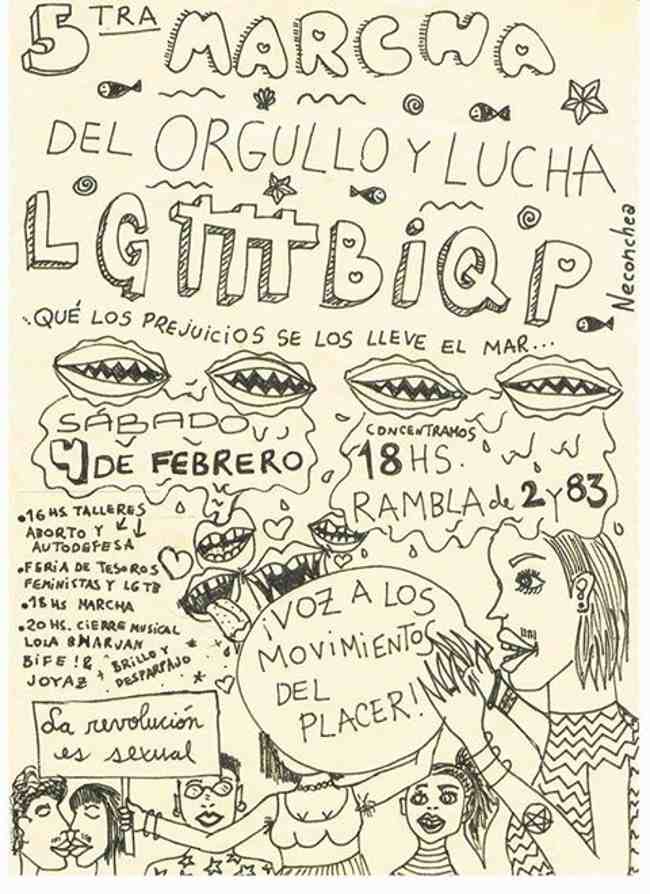 5TRA MARCHA
DEL ORGULLO Y LUCHA
LGTTTBiQP
Neconchea
¡QUÉ LOS PREJUICIOS SE LOS LLEVE EL MAR...
SÁBADO
4 DE FEBRERO
CONCENTRAMOS
18 HS.
RAMBLA de 2 y 83
•16 HS TALLERES
ABORTO Y
AUTODEFESA
•FERIA DE TESOROS
FEMINISTAS Y LGTB
•18 HS MARCHA
•20 HS. CIERRE MUSICAL
LOLA BHARJAN
BIFE !&
JOYAZ + BRILLO Y
DESPARPAJO
¡VOZ A LOS
MOVIMIENTOS
DEL
PLACER!
La revolución
es sexual